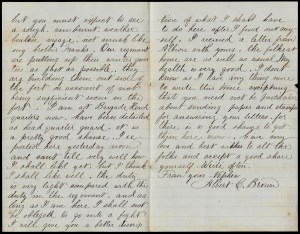 but you must expect to see
a rough, sunburnt, weather
beaten visage, not much like
my brother Franks. Our regiment
are putting up their winter quar-
ters as fast as possible, they
are building them out side of
the fort on account of not
being sufficient room in the
fort. I am at Brigade Head
quarters now. have been detailed
as head quarter guard. it is
a pretty good chance. I re-
ported here yesterday noon
and can't tell very well how
I shall like yet. but I think
I shall like well. the duty
is very light compared with the
duty in the regiment, and as
long as I am here I shall not
be obliged to go into a fight
I will give you a better descrip
tion of what I shall have
to do here after I find out my
self. I received a letter from
Albion with yours. the folks at
home are as well as usual. my
health is very good. I don't
know as I have any thing more
to write this time excepting
that you need not be particular
about sending paper and stamps
for answering your letters, for
there is a good change to get
them here now. Give my
love and best wishes to all the
folks and accept a good share
yourself. Write often.
From your Nephew
Albert C. Brown